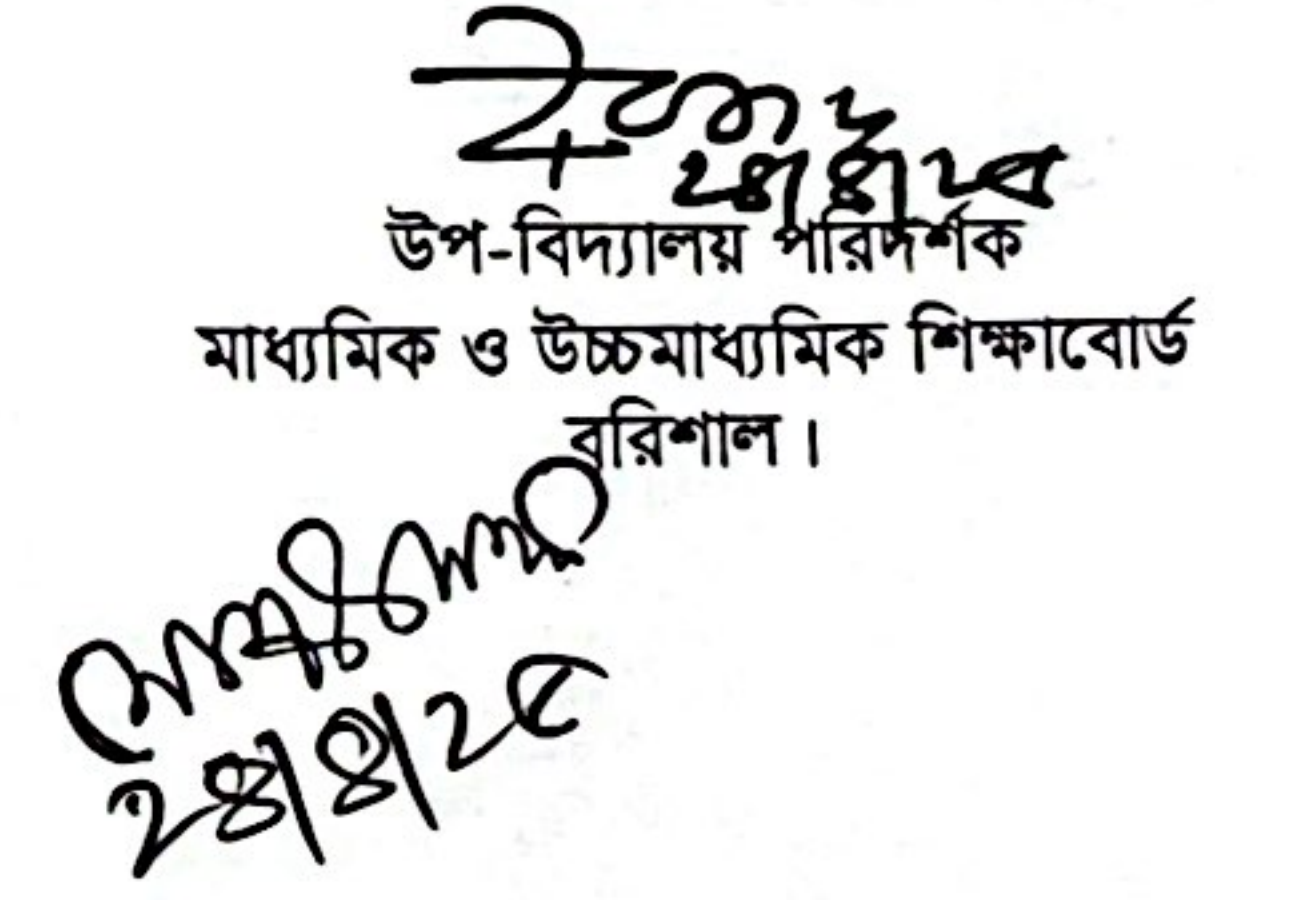 ২৪/৪/২৫
উপ-বিদ্যালয় পরিদর্শক
মাধ্যমিক ও উচ্চমাধ্যমিক শিক্ষাবোর্ড
বরিশাল।
২৪/৪/২৫